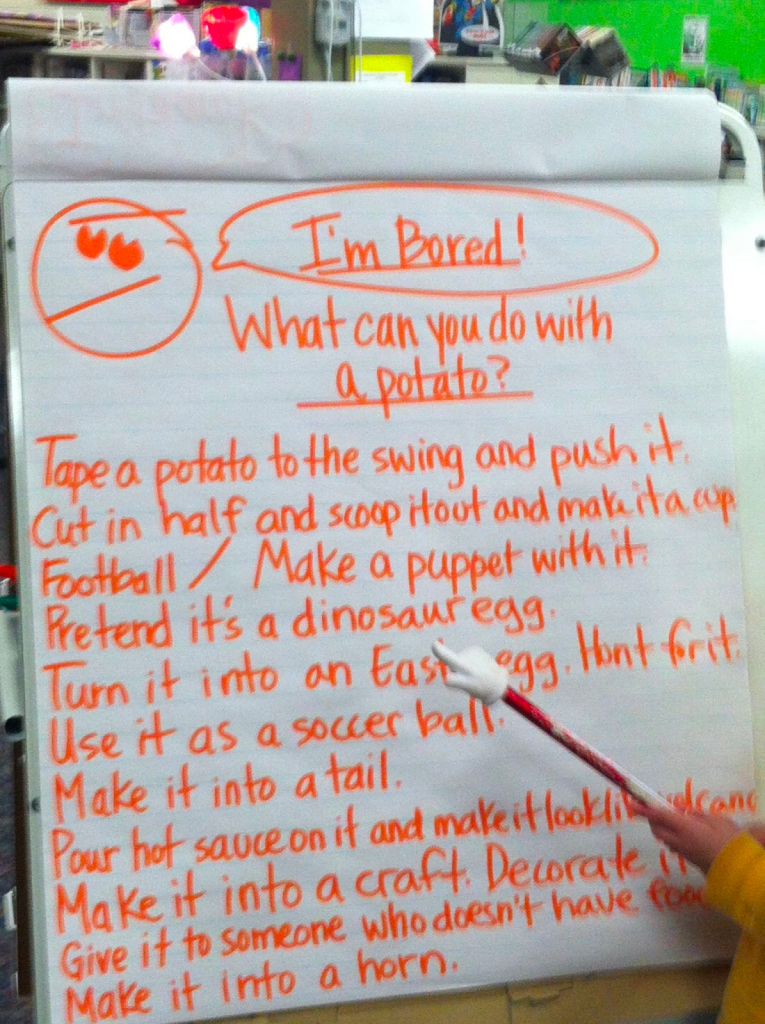 I'm Bored!
What can you do with
a potato?
Tape a potato to the swing and push it.
Cut in half and scoop it out and make it a cup.
Football / Make a puppet with it.
Pretend it's a dinosaur egg.
Turn it into an East egg. Hunt for it.
Use it as a soccer ball.
Make it into a tail.
Pour hot sauce on it and make it look like volcano
Make it into a craft. Decorate it
Give it to someone who doesn't have foo
Make it into a horn.